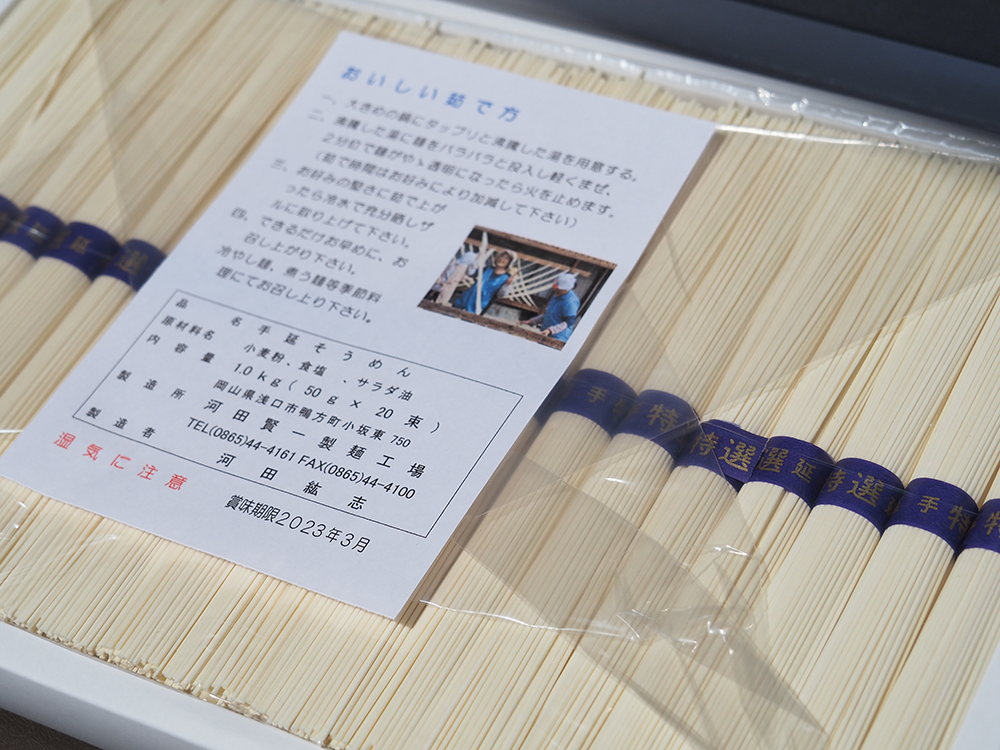 おいしい茹で方
一、大きめの鍋にタップリと沸騰した湯を用意する。
二、沸騰した湯に麺をパラパラと投入し軽くまぜ、
２分位で麺がやゝ透明になったら火を止めます。
（茹で時間はお好みにより加減して下さい）
三、お好みの堅さに茹で上が
ったら冷水で充分晒しザ
ルに取り上げて下さい。
四、できるだけお早めに、お
召し上がり下さい。
冷やし麺、煮う麺等季節料
理にてお召し上り下さい。
品名 手延そうめん
原材料名 小麦粉、食塩 、サラダ油
内容量 1.0kg( 50g × 20束 )
製造所 岡山県浅口市鴨方町小坂東750
河田賢一製麺工場
TEL(0865)44-4161 FAX(0865)44-4100
製造者 河田紘志
湿気に注意
賞味期限2023年3月
延
選
手特
特
特選
選延
特選
手特
特